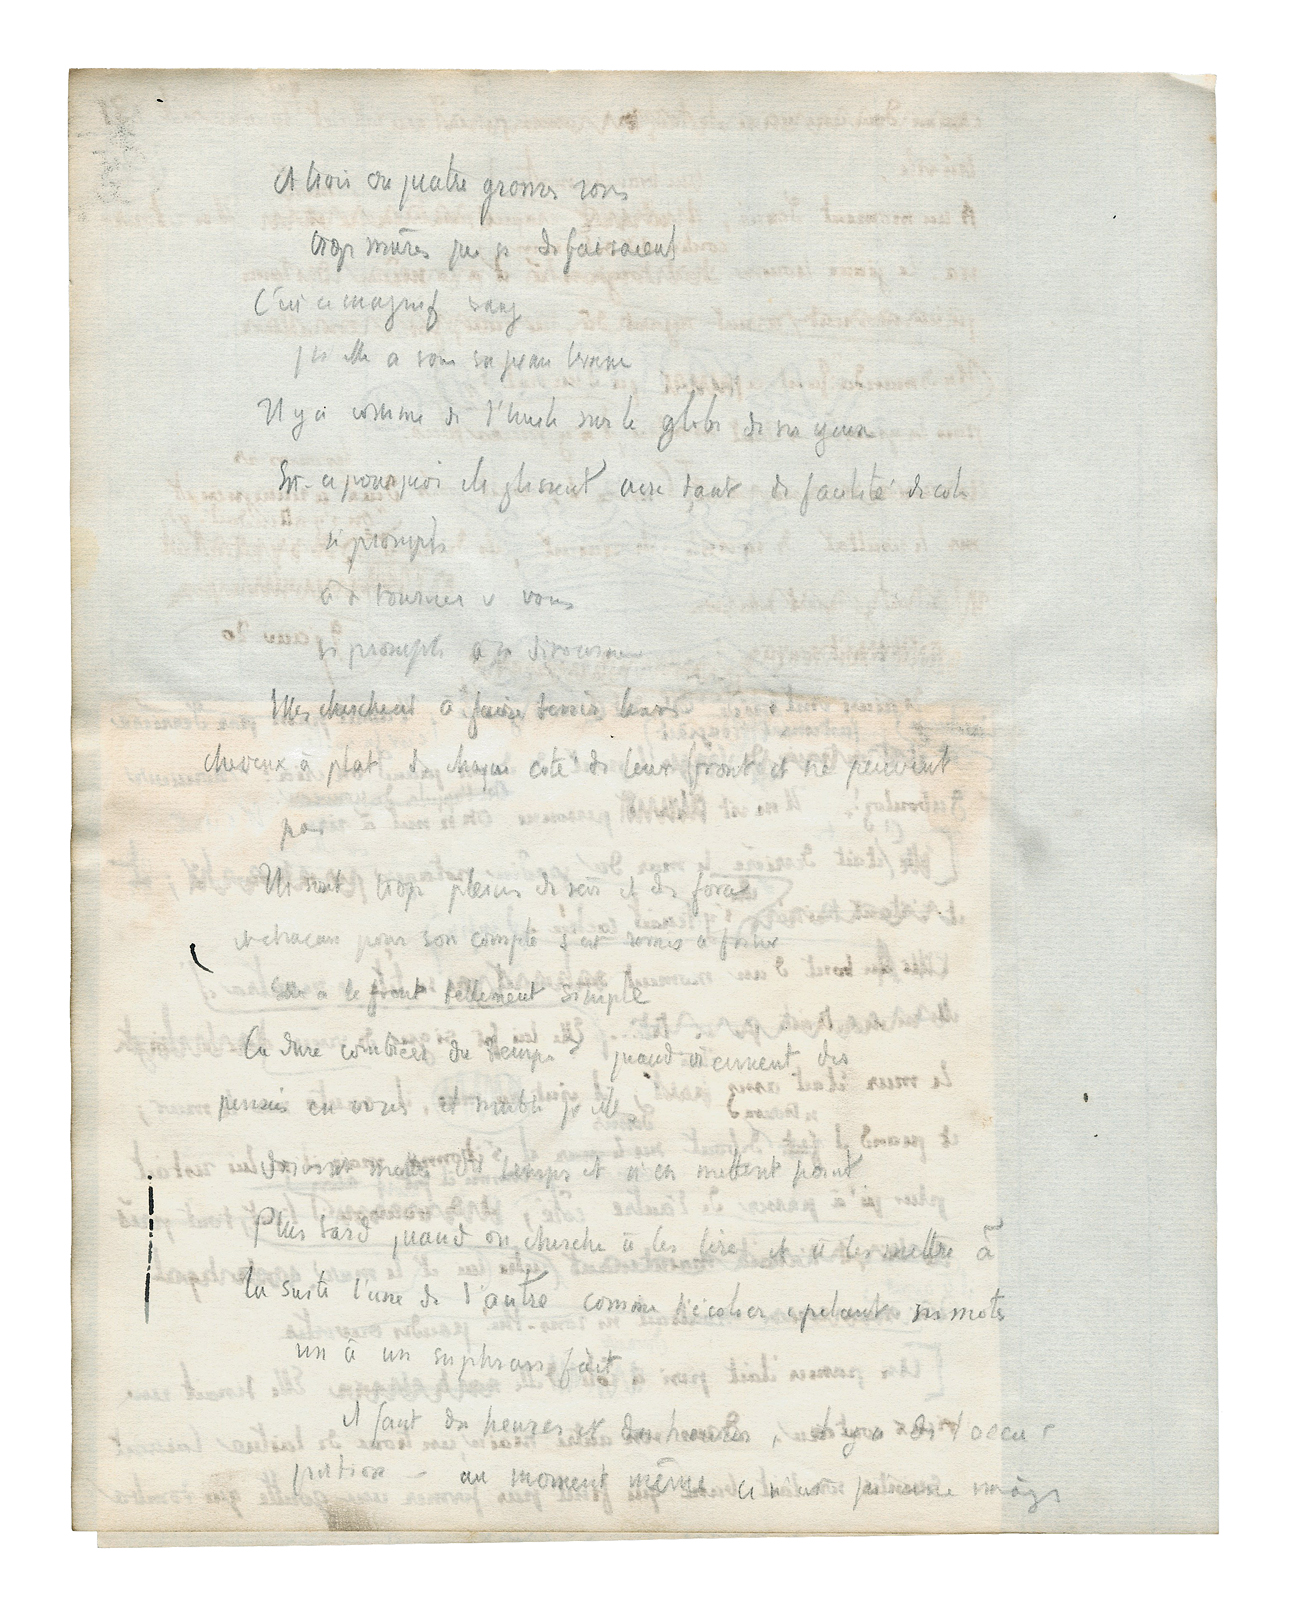 et trois ou quatre grosses roses
trop mûres qui se défaisaient
C'est ce magnif sang
qu'elle a sous sa peau brune
Il y a comme de l'huile sur le globe de ses yeux
Est-ce pourquoi ils glissent avec tant de facilité de côté
si prompts
à se tourner v vous
si prompts à se détourner
Elles cherchent à faire tenir leurs
cheveux à plat de chaque côté de leur front et ne peuvent
pas
Ils sont trop pleins de sève et de force
et chacun pour son compte s'est remis à friser
Elle a le front tellement simple
Ça dure combien de temps quand viennent des
pensées en vous et semble qu'elles
du temps et n'en mettent point
Plus tard quand on cherche à les lire et à les mettre à
la suite l'une de l'autre comme l'écolier epelant ses mots
un à un sa phrase fait
il faut des heures et des heures, il y a de l'occu
pation — au moment même ce n'est qu'une image